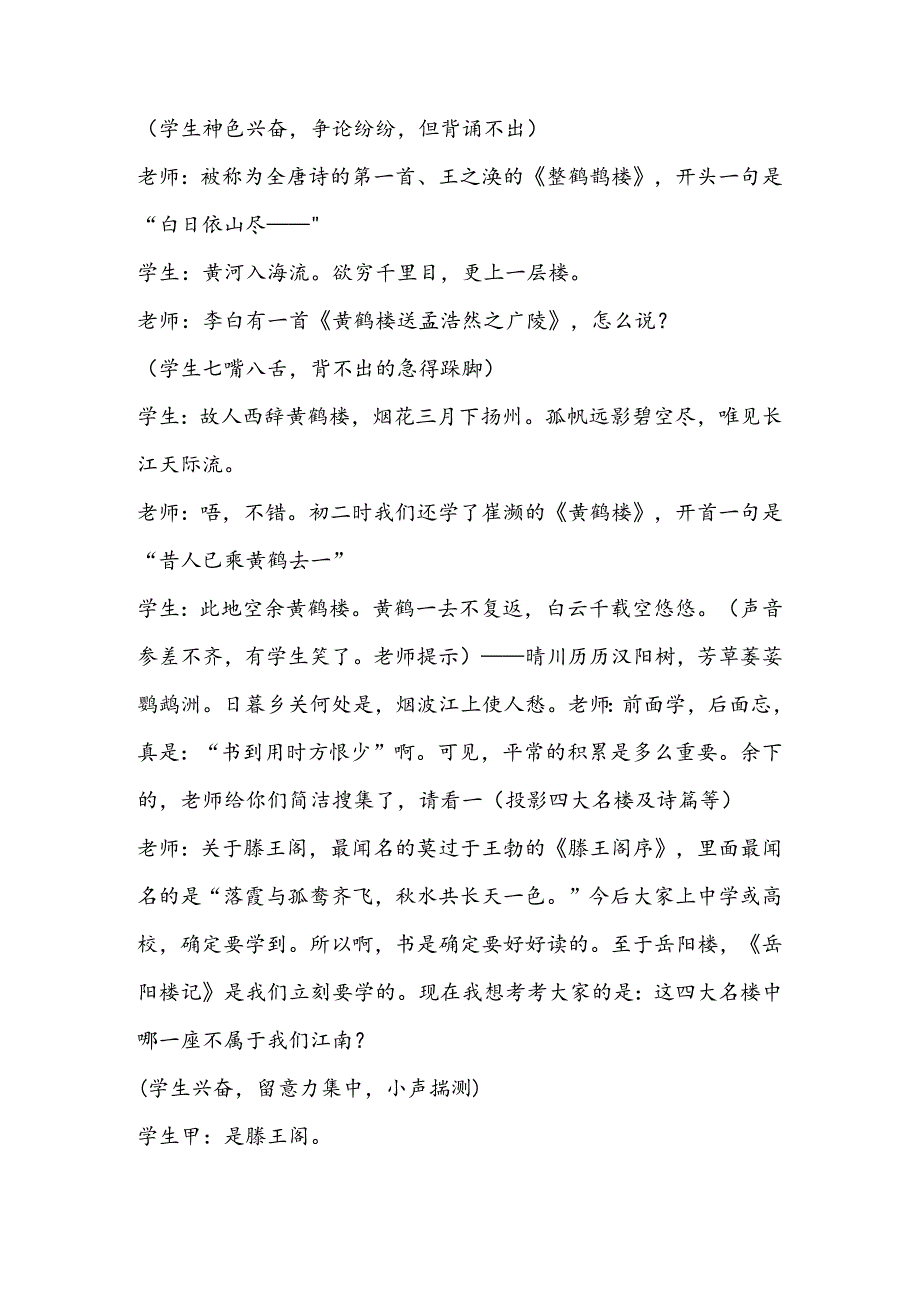 （学生神色兴奋，争论纷纷，但背诵不出）
老师：被称为全唐诗的第一首、王之涣的《整鹤鹊楼》，开头一句是
“白日依山尽——"
学生：黄河入海流。欲穷千里目，更上一层楼。
老师：李白有一首《黄鹤楼送孟浩然之广陵》，怎么说？
（学生七嘴八舌，背不出的急得跺脚）
学生：故人西辞黄鹤楼，烟花三月下扬州。孤帆远影碧空尽，唯见长
江天际流。
老师：唔，不错。初二时我们还学了崔濒的《黄鹤楼》，开首一句是
“昔人已乘黄鹤去一”
学生：此地空余黄鹤楼。黄鹤一去不复返，白云千载空悠悠。（声音
参差不齐，有学生笑了。老师提示）——晴川历历汉阳树，芳草萋荽
鹦鹉洲。日暮乡关何处是，烟波江上使人愁。老师：前面学，后面忘，
真是：“书到用时方恨少”啊。可见，平常的积累是多么重要。余下
的，老师给你们简洁搜集了，请看一（投影四大名楼及诗篇等）
老师：关于滕王阁，最闻名的莫过于王勃的《滕王阁序》，里面最闻
名的是“落霞与孤鹜齐飞，秋水共长天一色。”今后大家上中学或高
校，确定要学到。所以啊，书是确定要好好读的。至于岳阳楼，《岳
阳楼记》是我们立刻要学的。现在我想考考大家的是：这四大名楼中
哪一座不属于我们江南？
(学生兴奋，留意力集中，小声揣测)
学生甲：是滕王阁。